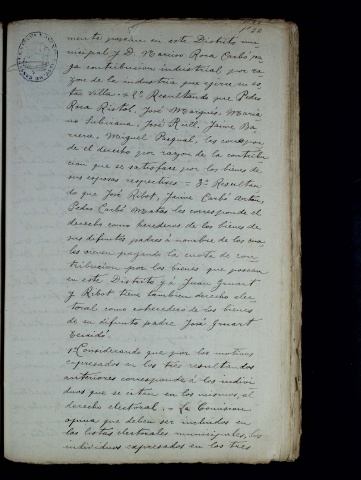 mente poseen en este Distrito mu-
nicipal y D. Narciso Roca Carbó pa-
ga contribucion industrial, por ra-
zon de la industria que ejerce en es-
ta villa = 2º Resultando que Pedro
Roca Ristol, José Marqués, Maria-
no Lubirana, José Rull, Jaime Ba-
rrera, Miguel Pasqual, les correspon-
de el derecho por razon de la contribu-
cion que se satisface por los bienes de
sus esposas respectivas = 3º Resultan-
do que José Ribot, Jaime Carbó
Pedro Carbó Matas les corresponde el
derecho como herederos de los bienes de
sus difuntos padres á nombre de los cua-
les vienen pagando la cuota de con-
tribucion por los bienes que poseen
en este Distrito y á Juan Gruart
y Ribot tiene tambien derecho elec-
toral como coheredero de los bienes
de su difunto padre José Gruart
1º Considerando que por los motivos
expresados en los tres resultandos
anteriores corresponde á los indivi-
duos que se citan en los mismos, el
derecho electoral. = La Comision
opina que deben ser incluidos en
las listas electorales municipales, los
individuos expresados en los tres